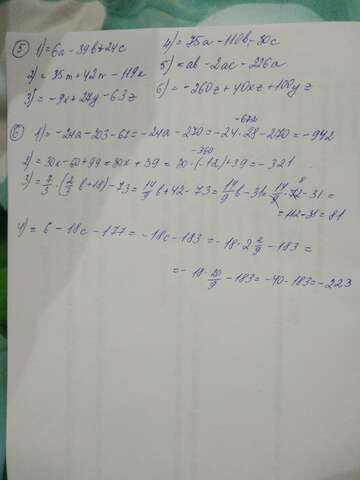 ⑤ 1) = 6a - 39b + 24c
2) = 35m + 42n - 119k
3) = -9x + 27y - 63z
4) = 75a - 110b - 30c
5) = ab - 2ac - 226a
6) = -260z + 40xz + 100yz
⑥ 1) = -24a - 203 - 67 = -24a - 270 = -24 · 28 - 270 = -942
-672
2) = 30x - 60 + 99 = 30x + 39 = 30 · (-12) + 39 = -321
-360
3) = 7/3 · (2/3 b + 18) - 73 = 14/9 b + 42 - 73 = 14/9 b - 31 = 14/9 · 72 - 31 =
8
= 112 - 31 = 81
4) = 6 - 18c - 177 = -18c - 183 = -18 · 2 2/9 - 183 =
= -18 · 20/9 - 183 = -40 - 183 = -223